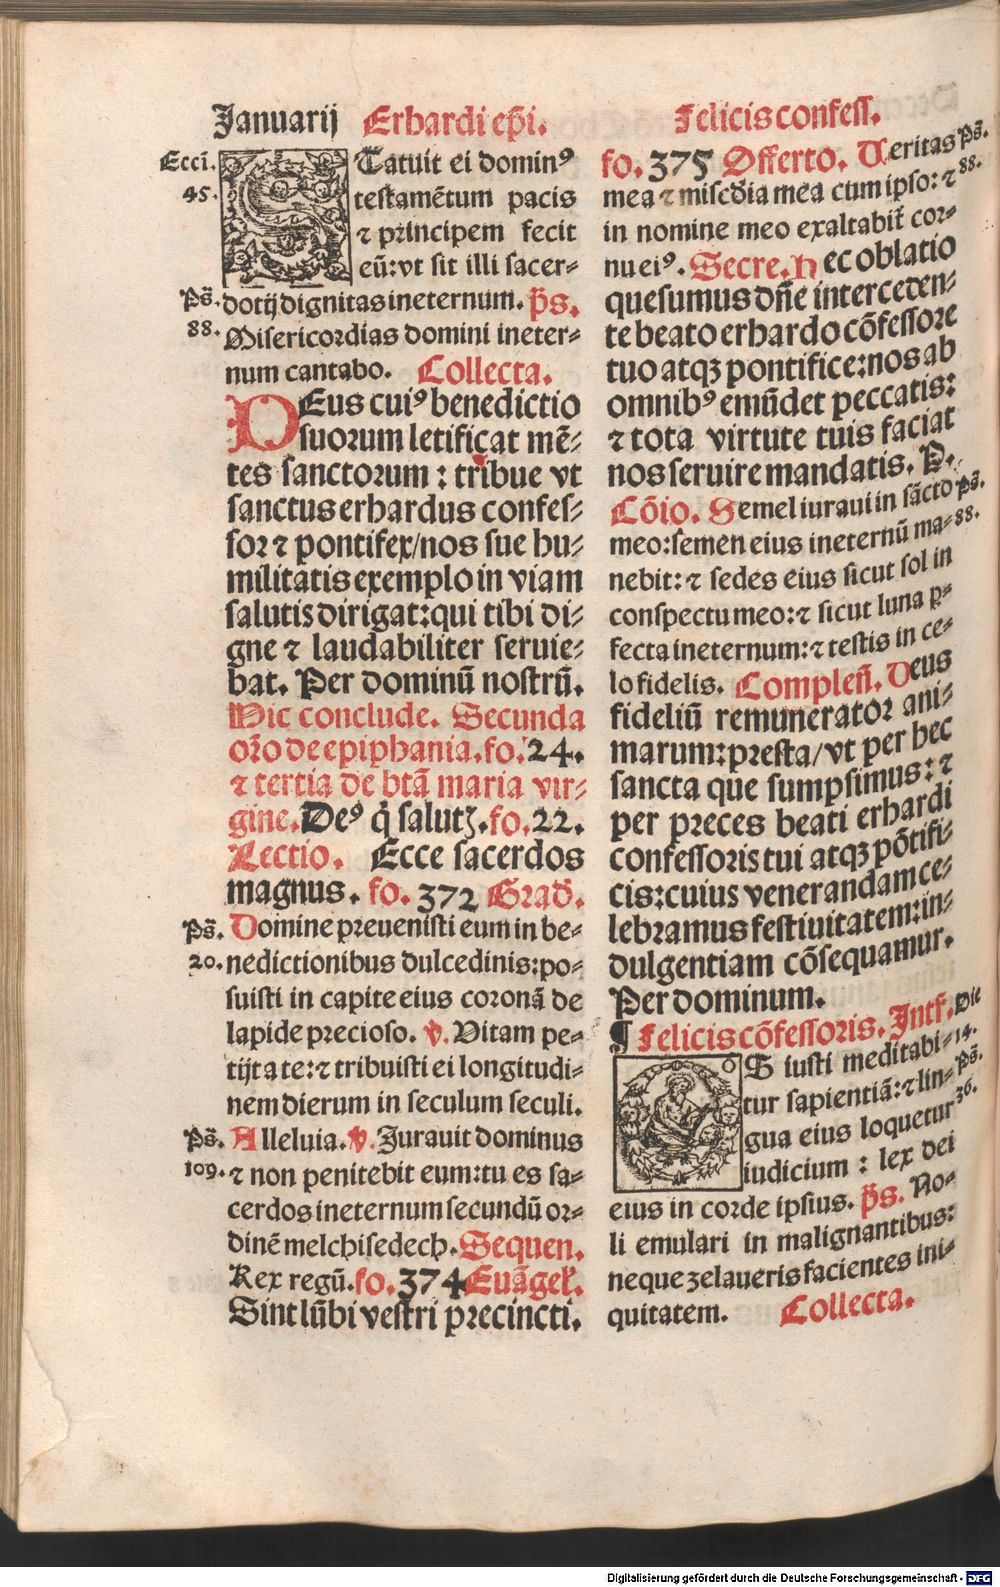 Januarij Erhardi ep̄i. Felicis confess.
Ecci. 45.
STatuit ei dominꝰ
testamētum pacis
⁊ principem fecit
eū:vt sit illi sacer⸗
Ps̄. dotij dignitas ineternum. p̄s.
88. Misericordias domini ineter⸗
num cantabo. Collecta.
DEus cuiꝰ benedictio
suorum letificat mē⸗
tes sanctorum : tribue vt
sanctus erhardus confes⸗
sor ⁊ pontifex/nos sue hu⸗
militatis exemplo in viam
salutis dirigat:qui tibi di⸗
gne ⁊ laudabiliter seruie⸗
bat. Per dominū nostrū.
Hic conclude. Secunda
or̄o de epiphania.fo.24.
⁊ tertia de btā maria vir⸗
gine. Deꝰ q̄ salutꝫ.fo.22.
Lectio. Ecce sacerdos
magnus. fo. 372 Grad̄.
Ps̄. Domine preuenisti eum in be⸗
20. nedictionibus dulcedinis:po⸗
suisti in capite eius coronā de
lapide precioso. v. Vitam pe⸗
tijt a te:⁊ tribuisti ei longitudi⸗
nem dierum in seculum seculi.
Ps̄. Alleluia. v. Jurauit dominus
109. ⁊ non penitebit eum:tu es sa⸗
cerdos ineternum secundū or⸗
dinē melchisedech. Sequen.
Rex regū. fo. 374 Euāgel̄.
Sint lūbi vestri precincti.
fo. 375 Offerto. Veritas Ps̄.
mea ⁊ misc̄dia mea cum ipso: ⁊ 88.
in nomine meo exaltabit̄ cor⸗
nu eiꝰ. Secre. Hec oblatio
quesumus dn̄e interceden⸗
te beato erhardo cōfessore
tuo atqꝫ pontifice:nos ab
omnibꝰ emūdet peccatis:
⁊ tota virtute tuis faciat
nos seruire mandatis. P.
Cōio. Semel iuraui in sācto Ps̄.
meo:semen eius ineternū ma⸗ 88.
nebit: ⁊ sedes eius sicut sol in
conspectu meo: ⁊ sicut luna ꝑ⸗
fecta ineternum: ⁊ testis in ce⸗
lo fidelis. Complen̄. Deus
fideliū remunerator ani⸗
marum:presta/vt per hec
sancta que sumpsimus: ⁊
per preces beati erhardi
confessoris tui atqꝫ pōtifi⸗
cis:cuius venerandam ce⸗
lebramus festiuitatem:in⸗
dulgentiam cōsequamur.
Per dominum.
¶ Felicis cōfessoris. Intr̄.
OS iusti meditabi⸗ 14.
tur sapientiā: ⁊ lin⸗ Ps̄.
gua eius loquetur 36.
iudicium : lex dei
eius in corde ipsius. p̄s. No⸗
li emulari in malignantibus:
neque zelaueris facientes ini⸗
quitatem. Collecta.
Digitalisierung gefördert durch die Deutsche Forschungsgemeinschaft - DFG